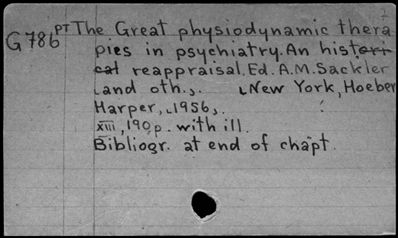 PT The Great physiodynamic thera
G786 pies in psychiatry. An histori
cal reappraisal. Ed. A.M. Sackler
[and oth.]. [New York, Hoeber
Harper, [1956],
XIII, 190p. with ill.
Bibliogr. at end of chapt.